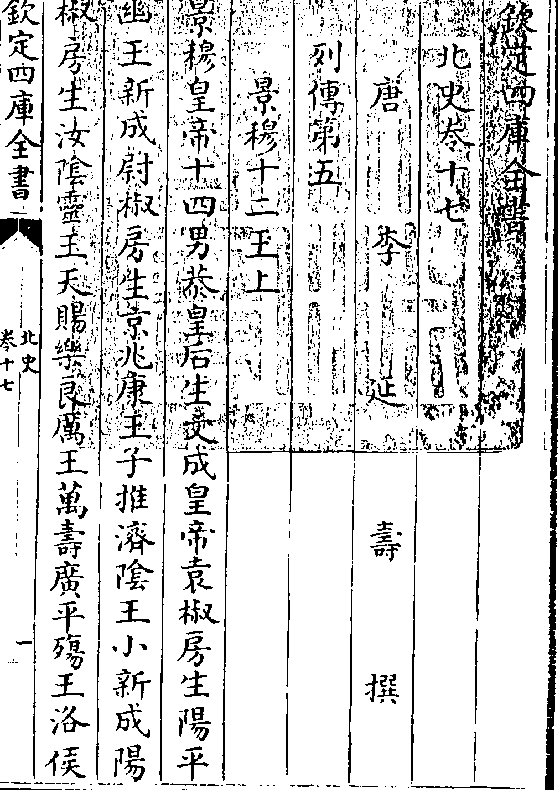 欽定四庫全書
北史卷十七
唐 李 延 壽 撰
列傳第五
景穆十二王上
景穆皇帝十四男恭皇后生文成皇帝袁椒房生陽平
幽王新成尉椒房生京兆康王子推濟陰王小新成陽
椒房生汝陰靈王天賜樂良厲王萬壽廣平殤王洛侯
欽定四庫全書
北史
卷十七
一